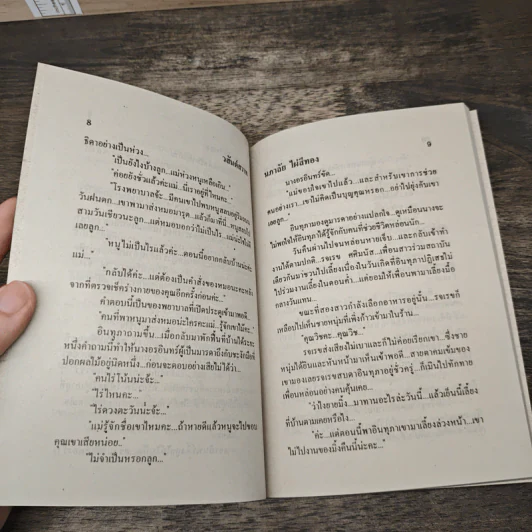 8
วสันต์สวาท
ธิดาอย่างเป็นห่วง...
"เป็นยังไงบ้างลูก...แม่ห่วงหนูเหลือเกิน"
"ค่อยยังชั่วแล้วค่ะแม่...นี่เราอยู่ที่ไหนคะ"
"โรงพยาบาลจ้ะ...มีคนเขาไปพบหนูสลบอยู่
วันฝนตก...เขาพามาส่งหมอ
สามวันเชียวนะลูก...แต่หมอบอกว่าไม่เป็นไร
เลยลูก"
"หนูไม่เป็นไรแล้วค่ะ...ตอนนี้อยากกลับบ้านค่ะ
แม่..."
"กลับได้จ้ะ...แต่ต้องเป็นคำสั่งของหมอนะคะหลัง
จากที่ตรวจเช็คร่างกายของคุณอีกครั้งก่อนค่ะ..."
คำตอบนี้เป็นของพยาบาลที่เปิดประตูเข้ามาพอดี...
"คนที่พาหนูมาส่งหมอน่ะใครคะแม่...รู้จักเขาไม๊คะ"
อินทุภาถามขึ้น...เมื่อกลับมาพักฟื้นที่บ้านได้ระยะ
หนึ่ง คำถามนี้ทำให้นางอรอินทร์ผู้เป็นมารดาถึงกับชะงักมือที่
ปอกผลไม้อยู่นิดหนึ่ง...ก่อนจะตอบอย่างเสียไม่ได้ว่า
"คนไร่โน้นน่ะจ้ะ..."
"ไร่ไหนคะ..."
"ไร่ดวงตะวันน่ะจ้ะ..."
"แม่รู้จักชื่อเขาไหมคะ...ถ้าหายดีแล้วหนูจะไปขอบ
คุณเขาเสียหน่อย..."
"ไม่จำเป็นหรอกลูก..."
นภาลัย ไผ่สีทอง
9
นางอรอินทร์ขัด...
"แม่ขอบใจเขาไปแล้ว...และสำหรับเขาการช่วย
คนอย่างเรา...เขาไม่คิดเป็นบุญคุณหรอก...อย่าไปยุ่งกับเขา
เลยลูก"
อินทุภามองดูมารดาอย่างแปลกใจ...ดูเหมือนนางจะ
ไม่พอใจให้อินทุภาได้รู้จักกับคนที่ช่วยชีวิตหล่อนนัก...
วันคืนผ่านไปจนหล่อนหายเจ็บ...และกลับเข้าทำ
งานได้ตามปกติ...รจเรข ศศิมนัส...เพื่อนสาวร่วมสถาบัน
เดียวกันมาชวนไปเลี้ยงเนื่องในวันเกิดที่อินทุภาปฏิเสธไม่
ไปร่วมงานเลี้ยงในตอนค่ำ...แต่ยอมให้เพื่อนพามาเลี้ยงมื้อ
กลางวันแทน...
ขณะที่สองสาวกำลังเลือกอาหารอยู่นั้น...รจเรขก็
เหลือบไปเห็นชายหนุ่มที่เพิ่งก้าวเข้ามาในร้าน...
"คุณวิชคะ...คุณวิช..."
รจเรขส่งเสียงไม่เบาและก็ไม่ค่อยเรียกเขา...ซึ่งชาย
หนุ่มได้ยินและหันหน้ามาเห็นเข้าพอดี...สายตาคมเข้มของ
เขามองเลยรจเรขสบตาอินทุภาอยู่ชั่วครู่...ก็เมินไปทักทาย
เพื่อนหล่อนอย่างคนคุ้นเคย...
"ว่าไงยายมิ้ง...มาทานอะไรล่ะวันนี้...แล้วเย็นนี้เลี้ยง
ที่บ้านตามเคยหรือไง..."
"ค่ะ...แต่ตอนนี้พาอินทุภาเขามาเลี้ยงล่วงหน้า...เขา
ไม่ไปงานของมิ้งคืนนี้น่ะคะ..."